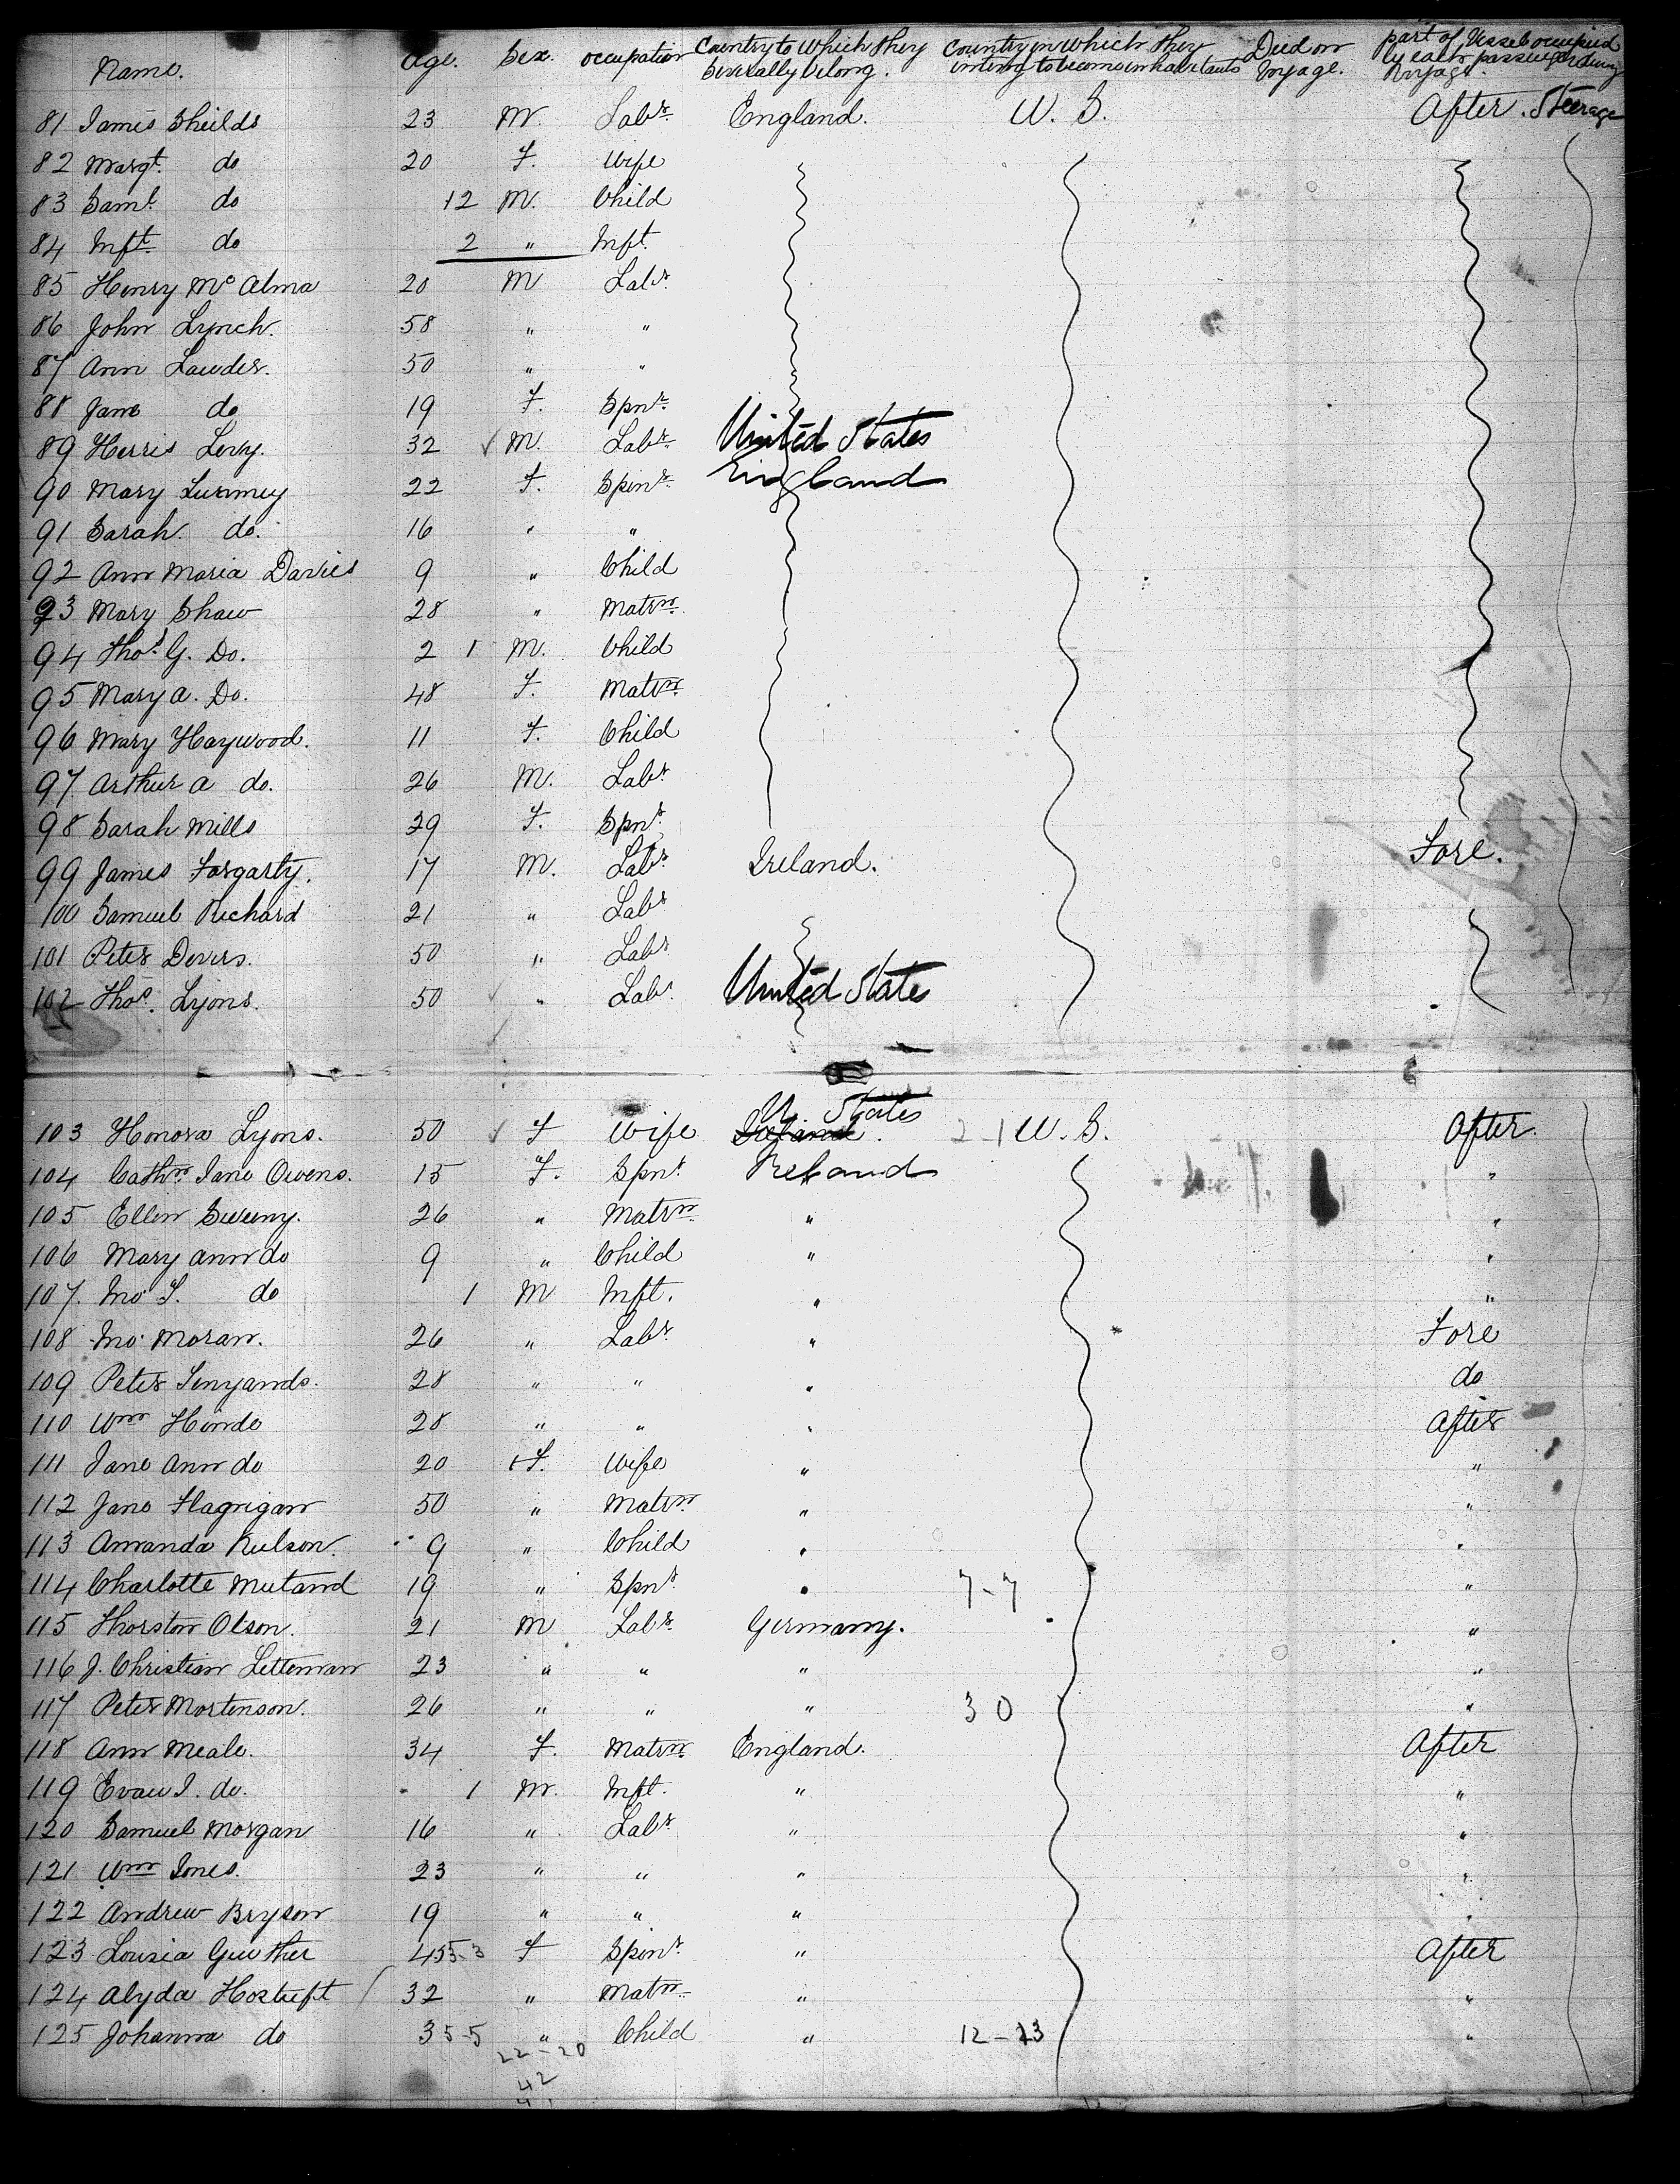 Name. Age. Sex. Occupation Country to which they severally belong. Country in which they intend to become inhabitants Died on Voyage. part of Vessel occupied by each passenger during Voyage.
81 James Sheilds 23 M. Labr. England. U. S. After. Steerage
82 Margt. do 20 F. Wife
83 Saml. do 12 M. Child
84 Inft. do 2 " Inft.
85 Henry Mc Alma 20 M Labr.
86 John Lynch. 58 " "
87 Ann Lawder. 50 " "
88 Jane do 19 F. Spnr.
89 Herris Levy. 32 ✓ M. Labr. United States
90 Mary Lummey 22 F. Spinr. England
91 Sarah do. 16 " "
92 Ann Maria Davies 9 " Child
93 Mary Shaw 28 " Matrn.
94 Thos. G. Do. 2 1 M. Child
95 Mary A. Do. 48 F. Matrn.
96 Mary Haywood. 11 F. Child
97 Arthur A do. 26 M. Labr.
98 Sarah Mills 29 F. Spnr.
99 James Forgarty. 17 M. Labr. Ireland. Fore.
100 Samuel Richard 21 " Labr
101 Peter Devers. 50 " Labr
102 Thos. Lyons. 50 ✓ " Labr. United States
103 Honora Lyons. 50 ✓ F Wife U. States Ireland. 2-1 U. S. After.
104 Cathn. Jane Owens. 15 F. Spnr. Ireland "
105 Ellen Sweeny. 26 " Matrn. " "
106 Mary Ann do 9 " Child " "
107. Jno S. do 1 M Inft. " "
108 Jno. Moran. 26 " Labr. " Fore
109 Peter 28 " " " do
110 Wm Hinde 28 " " " After
111 Jane Ann do 20 F. Wife " "
112 Jane Flagnigan 50 " Matrn " "
113 Amanda Neelson. 9 " Child " "
114 Charlotte 19 " Spnr. " 7-7 "
115 Thorston Olson. 21 M Labr. Germany. "
116 J. Christian Letteman 23 " " " "
117 Peter Mortenson. 26 " " " 30 "
118 Ann Meale. 34 F. Matrn. England. After
119 Evan J. do. 1 M. Inft. " "
120 Samuel Morgan 16 " Labr. " "
121 Wm Jones. 23 " " " "
122 Andrew Bryson 19 " " " "
123 Lousia Guether 45 5-3 F Spinr. " After
124 Alyda Hostuft 32 " Matrn. " "
125 Johanna do 3 5-5 " Child " 12-23 "
22-20
42